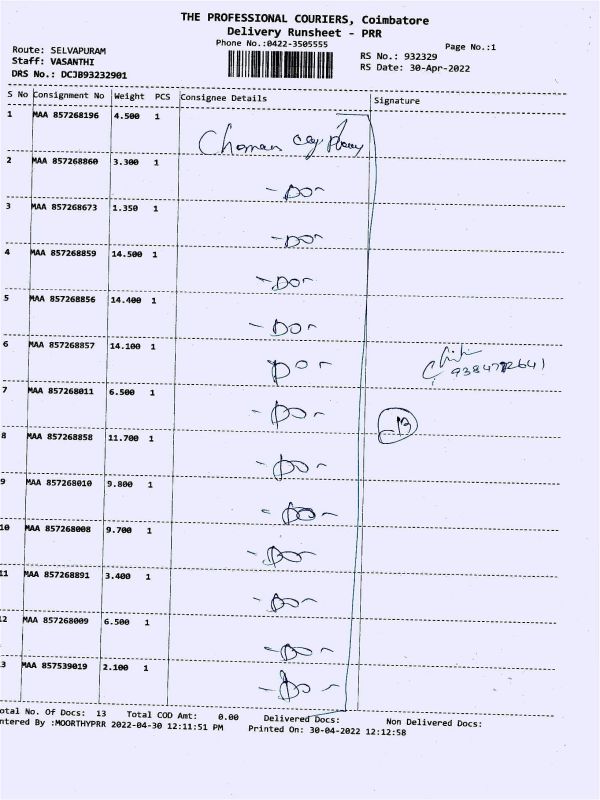 THE PROFESSIONAL COURIERS, Coimbatore
Delivery Runsheet - PRR
Phone No.:0422-3505555
Page No.:1
Route: SELVAPURAM
Staff: VASANTHI
DRS No.: DCJB93232901
RS No.: 932329
RS Date: 30-Apr-2022
S No Consignment No Weight PCS Consignee Details Signature
1 MAA 857268196 4.500 1
2 MAA 857268860 3.300 1
- Do -
3 MAA 857268673 1.350 1
- Do -
4 MAA 857268859 14.500 1
- Do -
5 MAA 857268856 14.400 1
- Do -
6 MAA 857268857 14.100 1
Do -
7 MAA 857268011 6.500 1
- Do -
8 MAA 857268858 11.700 1
- Do -
9 MAA 857268010 9.800 1
- Do -
10 MAA 857268008 9.700 1
- Do -
11 MAA 857268891 3.400 1
- Do -
2 MAA 857268009 6.500 1
- Do -
3 MAA 857539019 2.100 1
- Do -
otal No. Of Docs: 13 Total COD Amt: 0.00 Delivered Docs: Non Delivered Docs:
ntered By :MOORTHYPRR 2022-04-30 12:11:51 PM Printed On: 30-04-2022 12:12:58